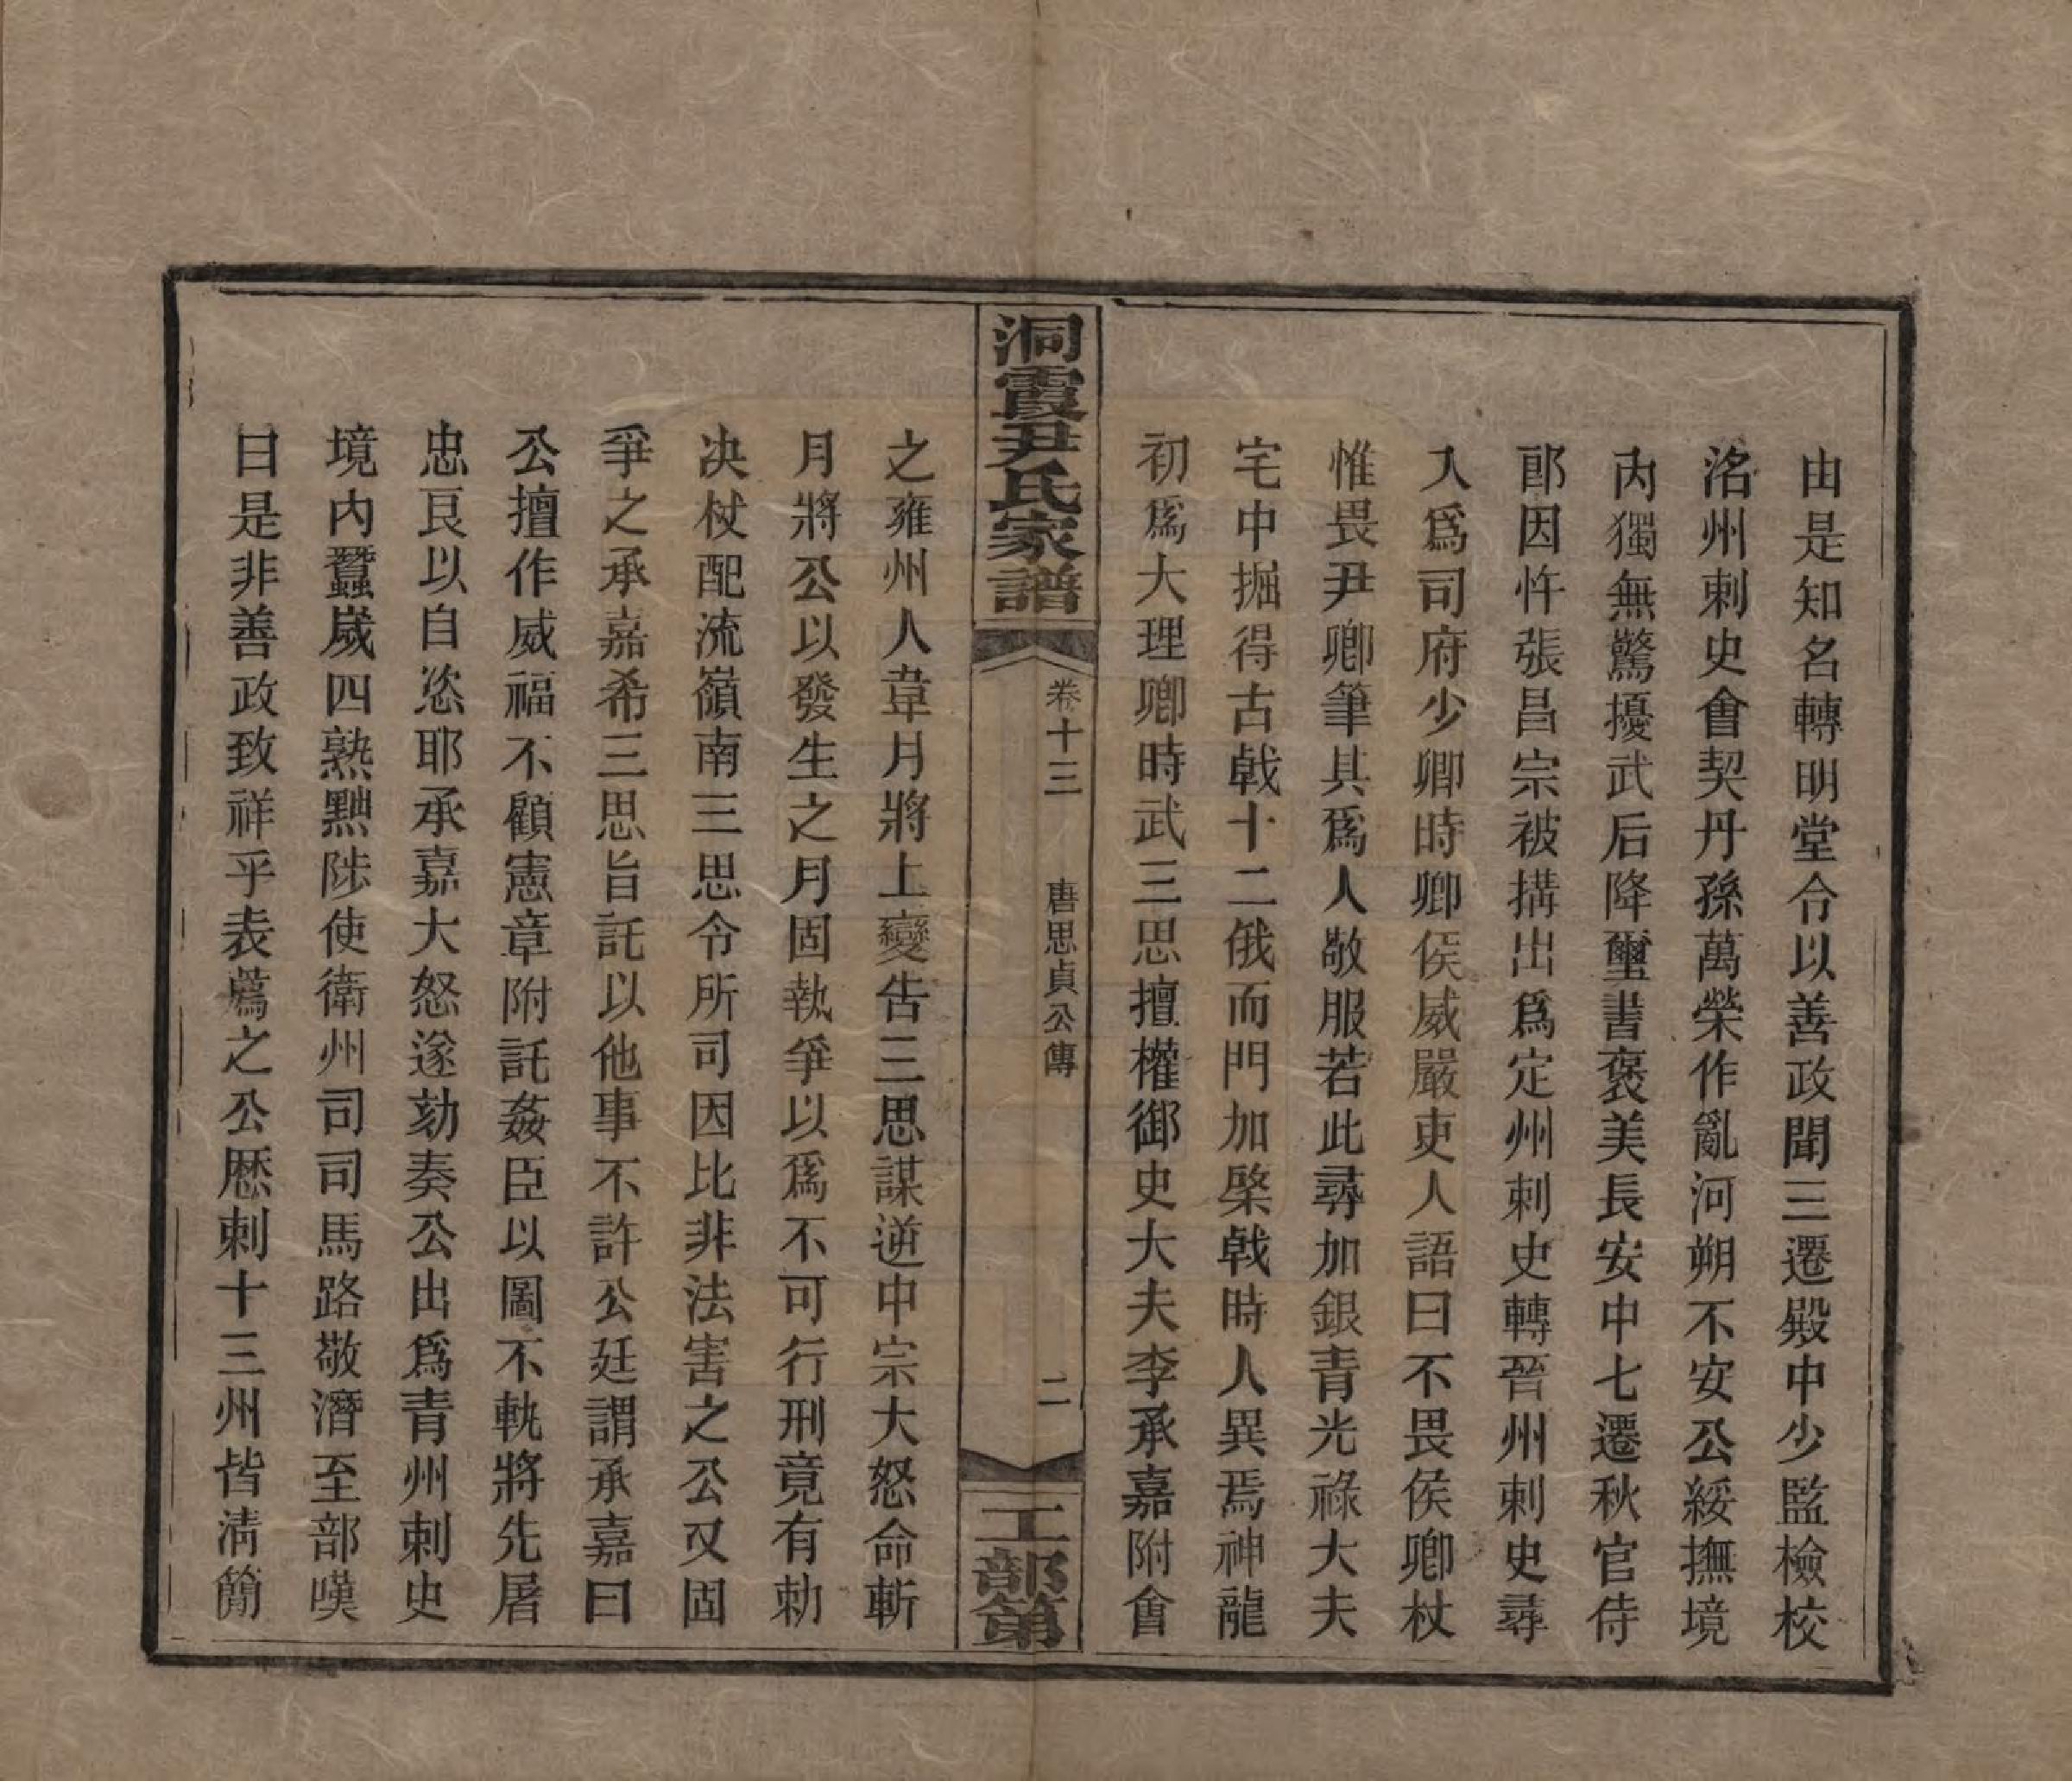 由是知名轉明堂令以善政聞三遷殿中少監檢校
洺州刺史會契丹孫萬榮作亂河朔不安公綏撫境
內獨無驚擾武后降璽書褒美長安中七遷秋官侍
郎因忤張昌宗被搆出爲定州刺史轉晉州刺史尋
入爲司府少卿時卿侯威嚴吏人語曰不畏侯卿杖
惟畏尹卿筆其爲人敬服若此尋加銀青光祿大夫
宅中掘得古戟十二俄而門加棨戟時人異焉神龍
初爲大理卿時武三思擅權御史大夫李承嘉附會
洞霞尹氏家譜
卷十三 唐思貞公傳 二
工部第
之雍州人韋月將上變告三思謀逆中宗大怒命斬
月將公以發生之月固執爭以爲不可行刑竟有勅
决杖配流嶺南三思令所司因比非法害之公又固
爭之承嘉希三思旨託以他事不許公廷謂承嘉曰
公擅作威福不顧憲章附託姦臣以圖不軌將先屠
忠良以自恣耶承嘉大怒遂劾奏公出爲青州刺史
境內蠶嵗四熟黜陟使衛州司司馬路敬潛至部嘆
曰是非善政致祥乎表薦之公歷刺十三州皆清簡